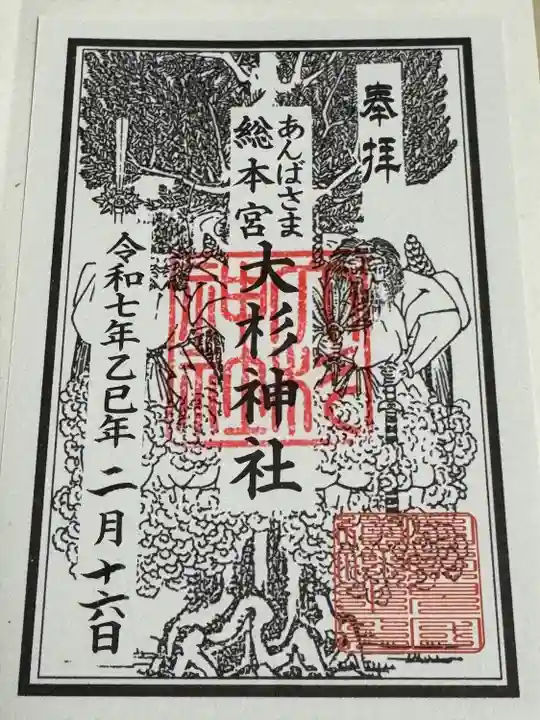 奉拝
あんばさま
総本宮
大杉神社
令和七年乙巳年二月十六日